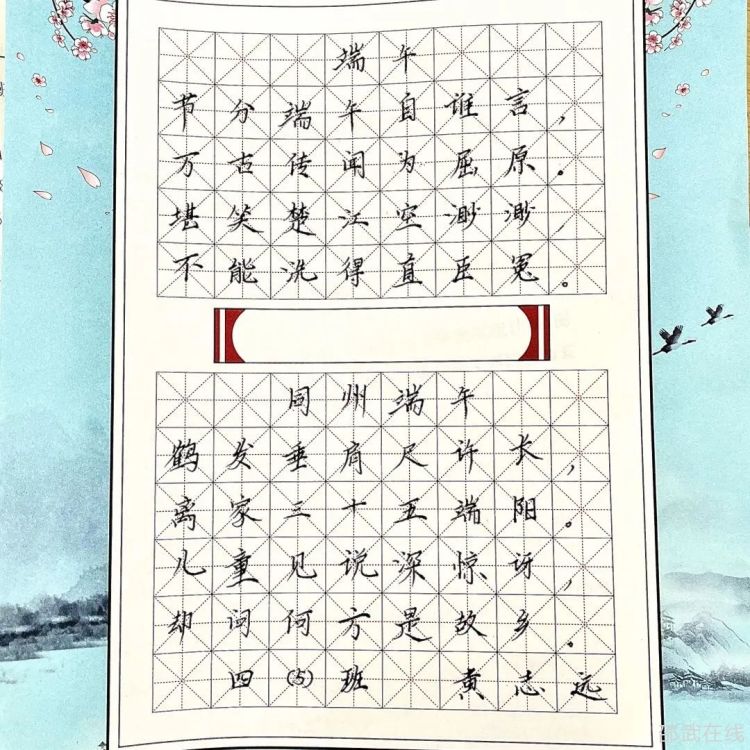 端午
节分端午自谁言，
万古传闻为屈原。
堪笑楚江空渺渺，
不能洗得直臣冤。
同州端午
鹤发垂肩尺许长，
离家三十五端阳。
儿童见说深惊讶，
却问何方是故乡。
四(5)班 黄志远
邵武在线